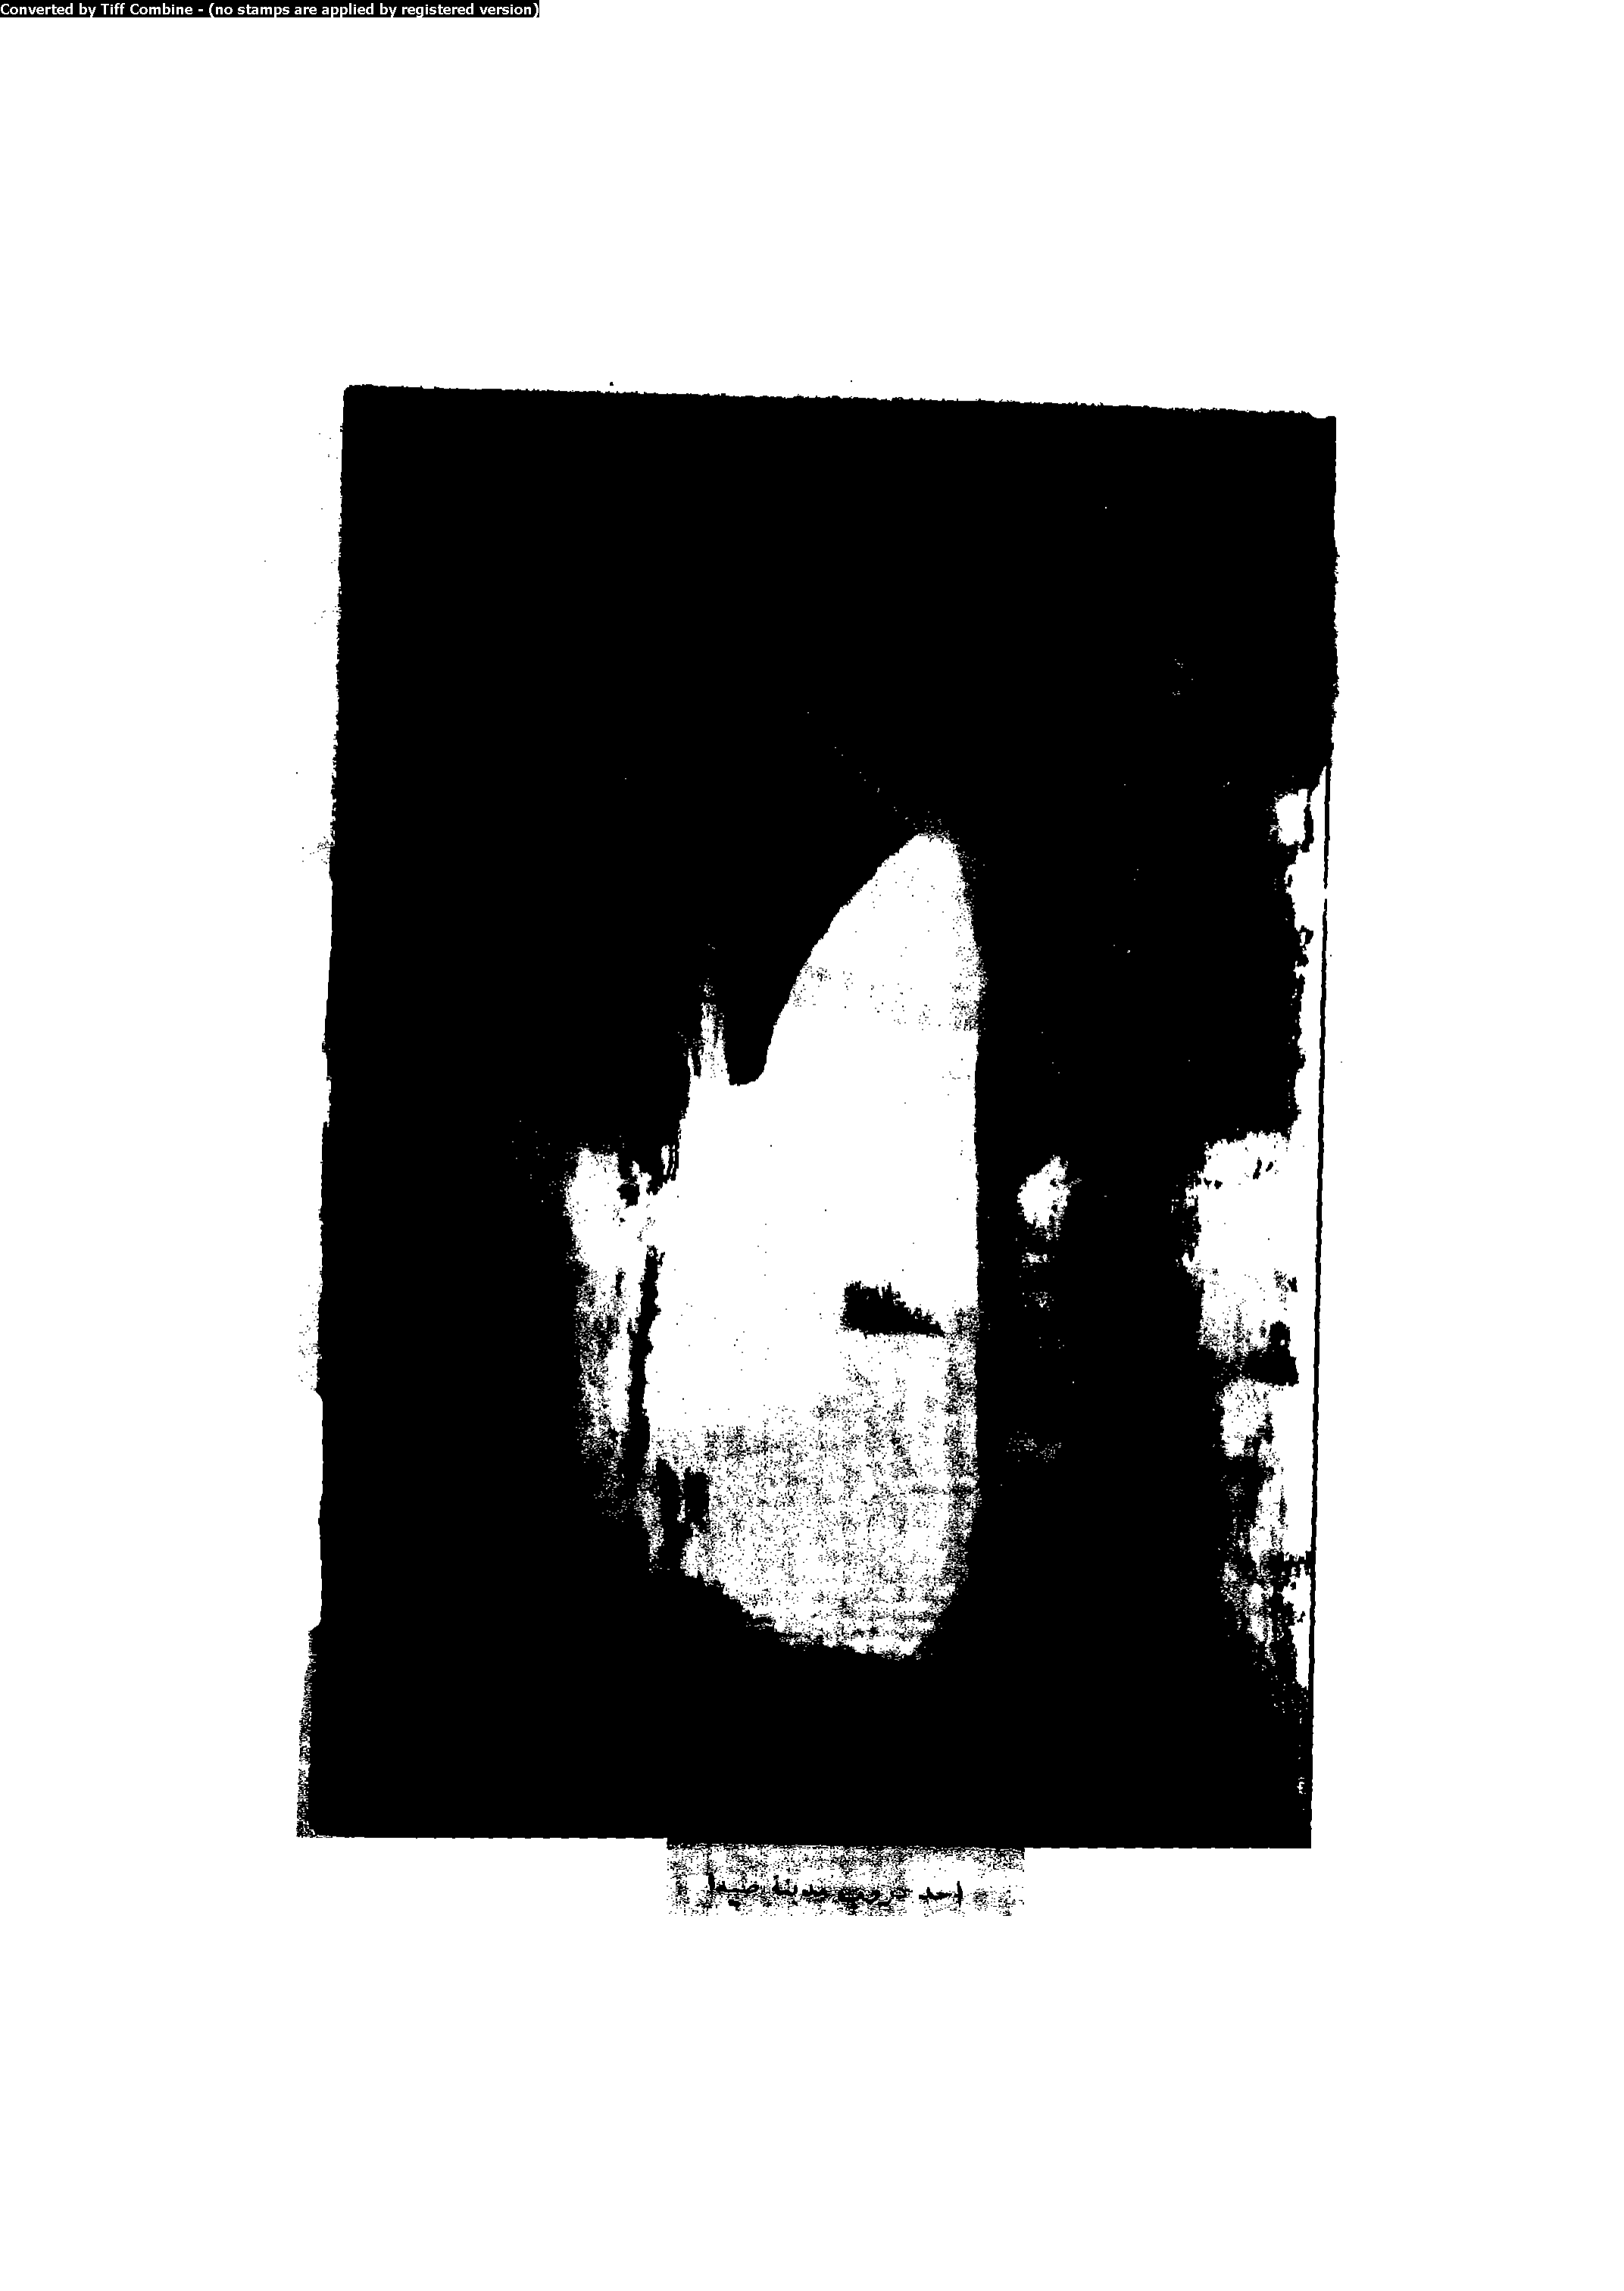 Converted by Tiff Combine - (no stamps are applied by registered version)
أحد دروب مدينة صيدا